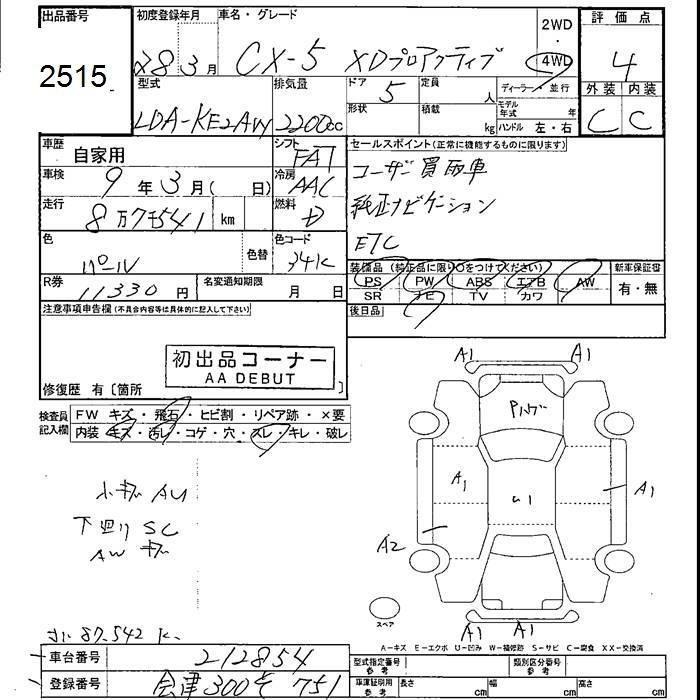 出品番号 初度登録年月 車名・グレード 2WD・4WD 評価点
2515 28 3月 CX-5 XDプロアクティブ 4
型式 排気量 ドア 5 定員 人 ディーラー・並行 外装 内装
LDA-KE2AW 2200cc 形状 積載 kg モデル年式 年 ハンドル 左・右 C C
車歴 自家用 シフト FAT セールスポイント(正常に機能するものに限ります)
車検 9年3月( 日) 冷房 AAC ユーザー買取車
走行 8万7千541 km 燃料 D 純正ナビゲーション
色 パール 色替 色コード 34K ETC
R券 11330円 名変通知期限 月 日
装備品(純正品に限り○をつけてください) 新車保証書
PS PW ABS エアB AW 有・無
SR ナビ TV カワ
後日品
注意事項申告欄(不具合内容等は具体的に記入して下さい)
初出品コーナー
AA DEBUT
修復歴 有〔箇所 〕
検査員記入欄 FW キズ・飛石・ヒビ割・リペア跡・×要
内装 キズ・汚レ・コゲ・穴・スレ・キレ・破レ
小キズ AU
下廻り SC
AW キズ
A1 A1
A1 A1
A2
スペア
87.542 K
A-キズ E-エクボ U-凹み W-補修跡 S-サビ C-腐食 XX-交換済
車台番号 212854
登録番号 会津300そ751
型式指定番号 参考 類別区分番号 参考
車庫証明用 参考 長さ cm 幅 cm 高さ cm